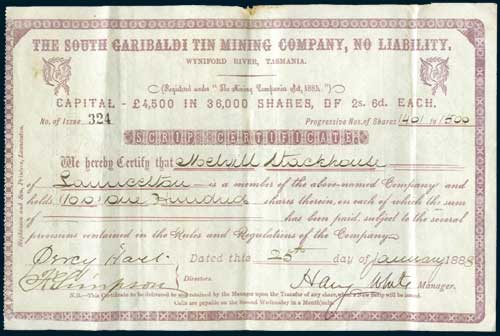 THE SOUTH GARIBALDI TIN MINING COMPANY, NO LIABILITY.
WYNIFORD RIVER, TASMANIA.
(Registered under "The Mining Companies Act, 1884.")
CAPITAL - £4,500 IN 36,000 SHARES, OF 2s. 6d. EACH.
No. of Issue 324 Progressive Nos. of Shares 1401 to 1500
SCRIP CERTIFICATE.
We hereby Certify that Stackhouse
of Launceston is a member of the above-named Company and
holds (100) One Hundred shares therein, on each of which the sum
of has been paid, subject to the several
provisions contained in the Rules and Regulations of the Company.
Percy Dated this 25th day of January 1888
Simpson Directors. Harry White Manager.
N.B.—This Certificate to be delivered to and retained by the Manager upon the Transfer of any share, when a New Scrip will be issued.
Calls are payable on the Second Wednesday in a Month only.
Launceston.